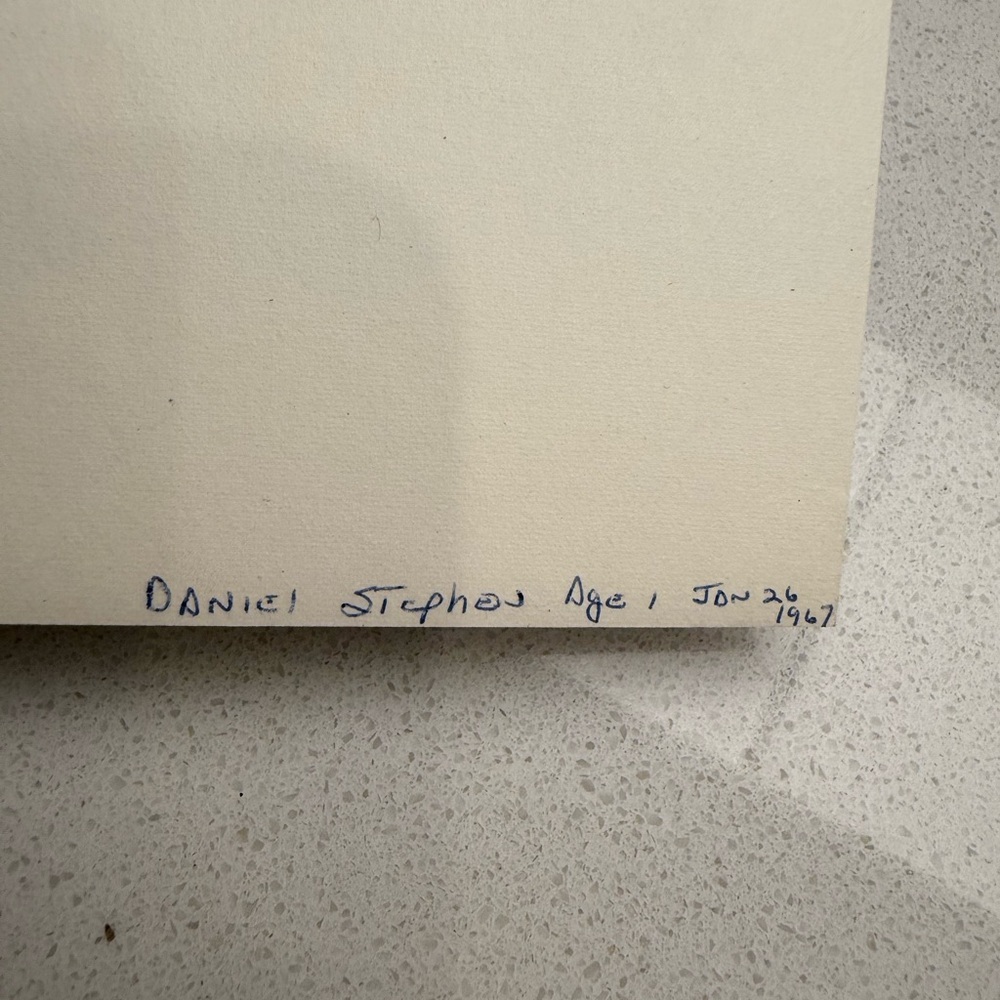 DANIEl STephen Age 1 JAN 26
1967